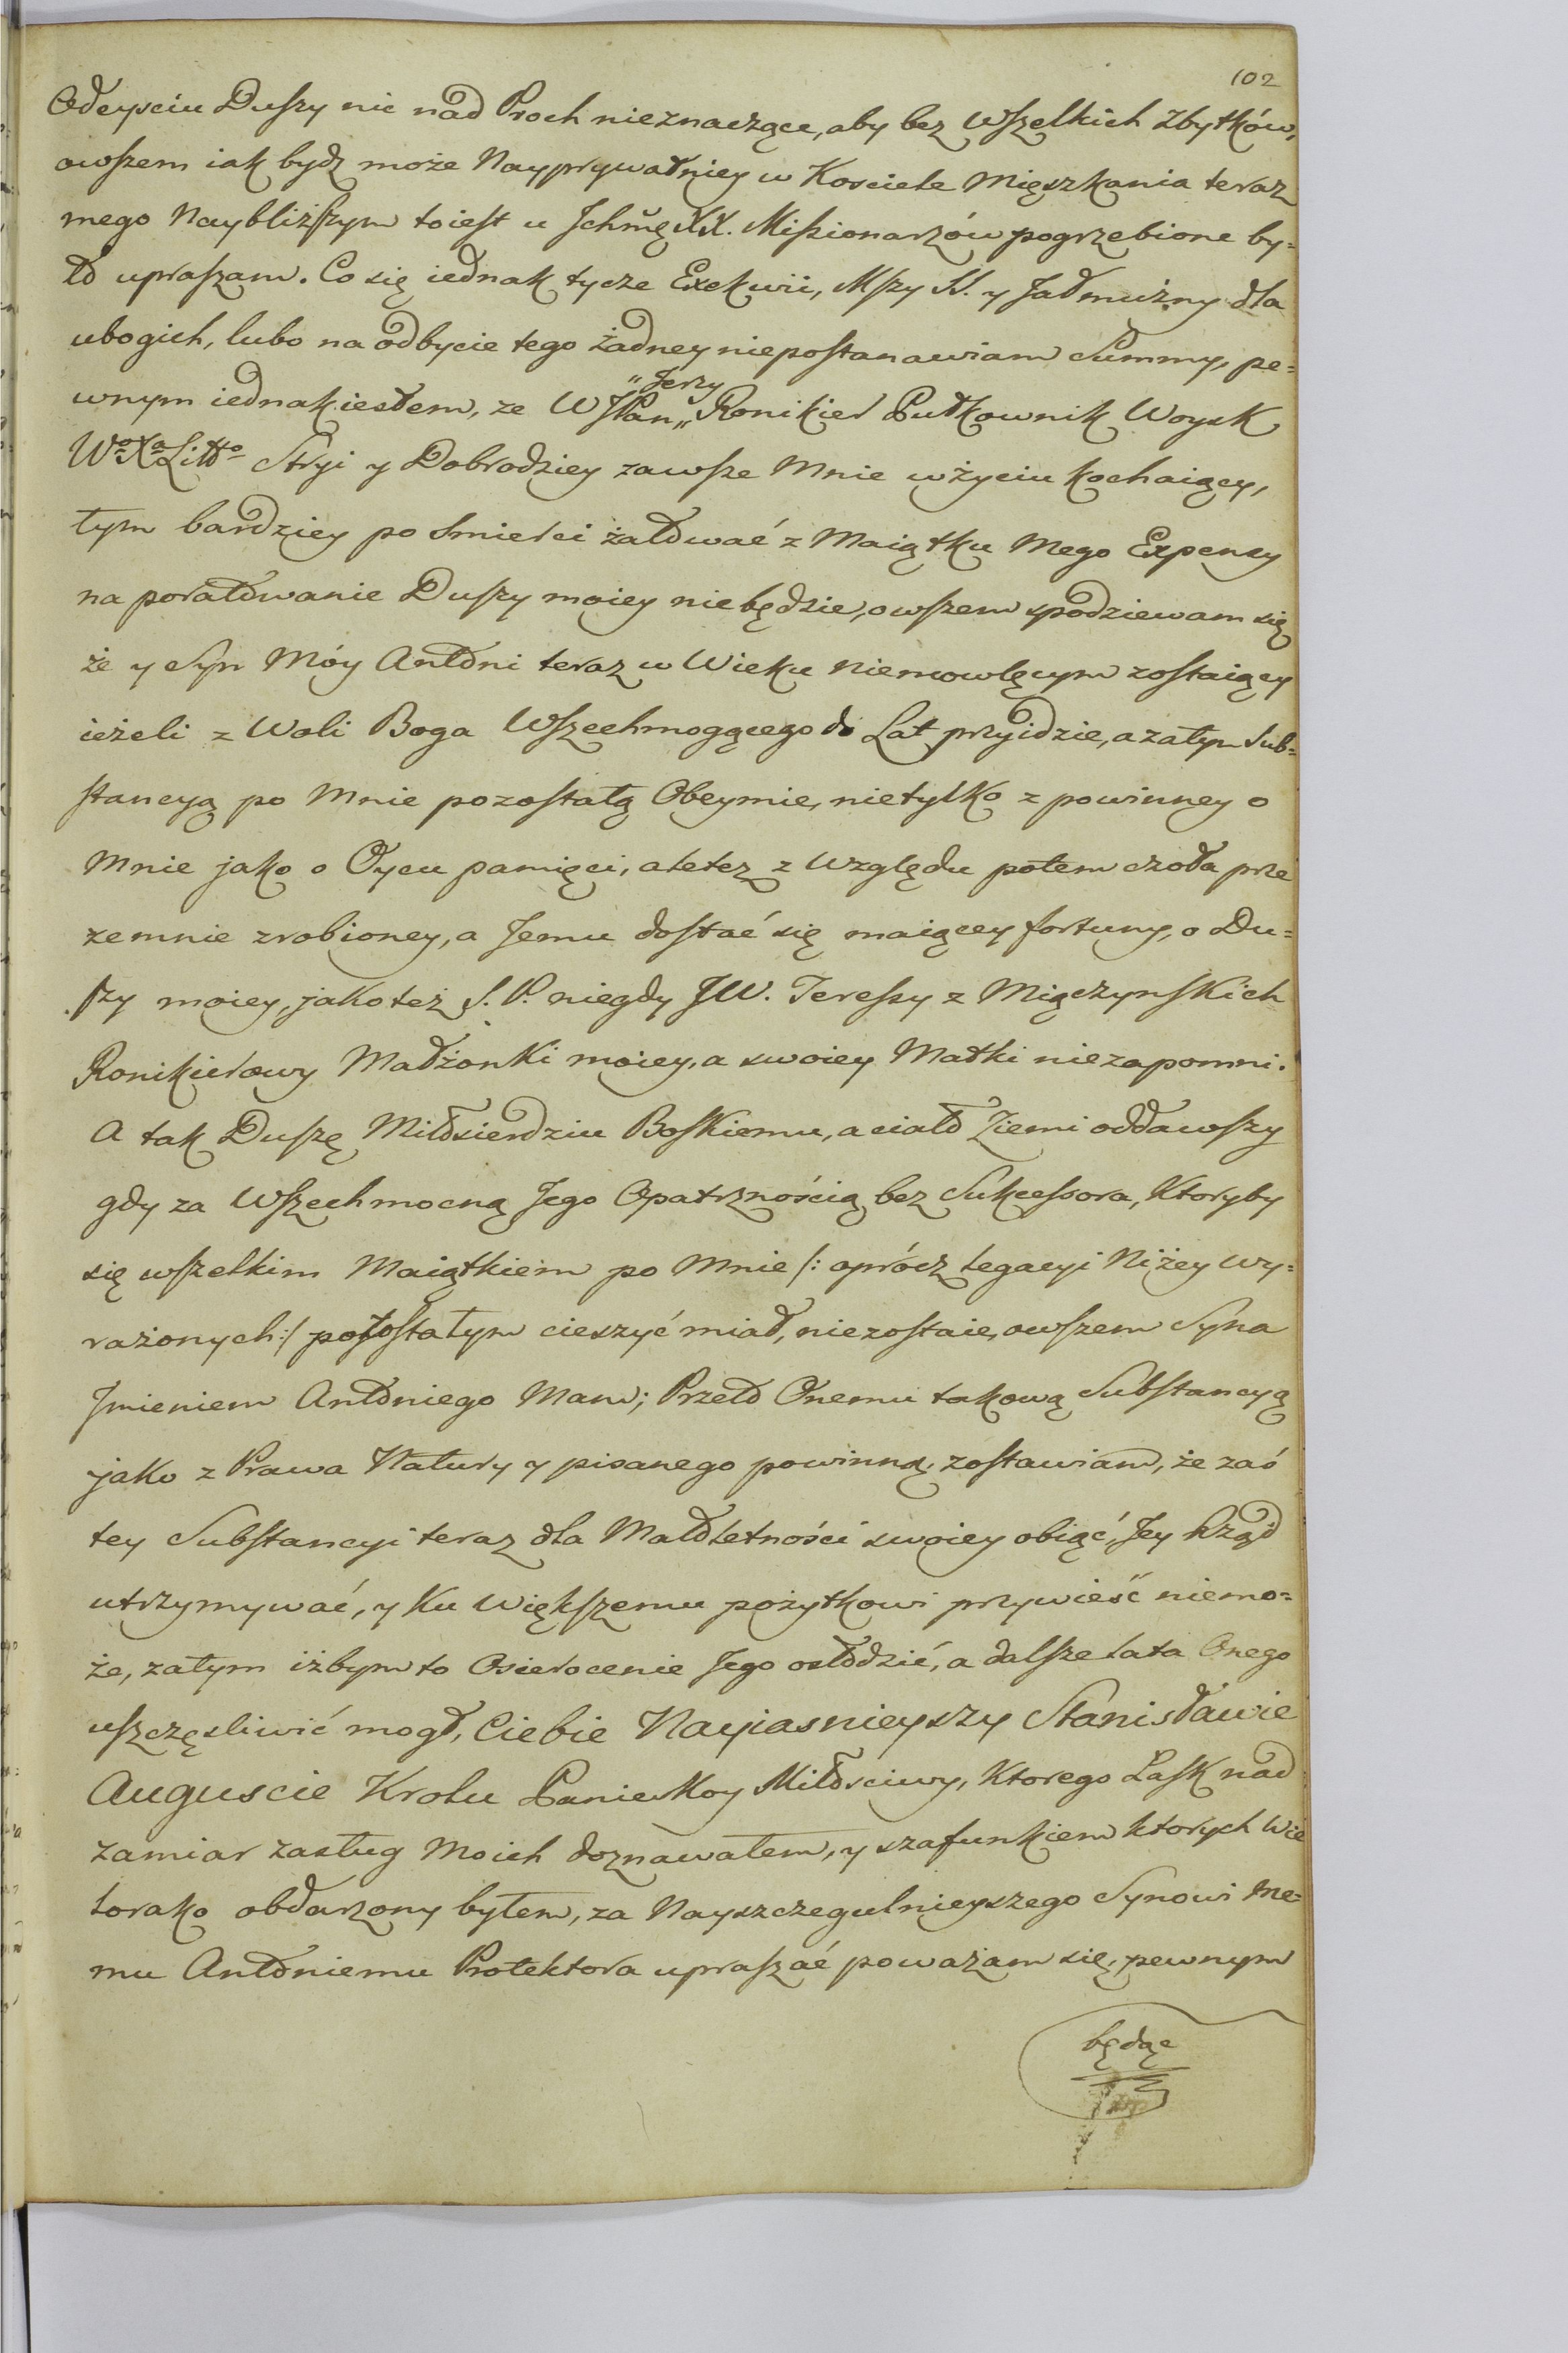 102
Odeysciu Duszy nic nad Proch nieznaczące, aby bez Wszelkich Zbytków,
owszem iak bydz może Nayprywatniey w Kosciele Mięszkania teraz
mego Naybliższym toiest u Jchmę XX. Missionarzów pogrzebione by=
ło upraszam. Co się iednak tycze Exekwii, Mszy SS. y Jałmużny dla
ubogich, lubo na odbycie tego żadney niepostanawiam Summy, pe=
wnym iednak iestem, ze WJPan „Jerzy„ Ronikier Pułkownik Woysk
Wo Xa Litto Stryi y Dobrodziey zawsze Mnie w życiu kochaiący,
tym bardziey po smierci żałować z Maiątku Mego Expensy
na poratowanie Duszy moiey niebędzie, owszem spodziewam się
że y Syn Móy Antoni teraz w Wieku niemowlęcym zostaiący
ieżeli z Woli Boga Wszechmogącego do Lat przyidzie, a zatym Sub=
stancyą po Mnie pozostałą Obeymie, nietylko z powinney o
Mnie jako o Oycu pamięci, ale tez z Względu potem czoła prze
zemnie zrobioney, a Jemu dostać się maiącey fortuny, o Du=
szy moiey, jako też S. P. niegdy JW. Teressy z Miączynskich
Ronikierowy Małżonki moiey, a swoiey Matki niezapomni.
A tak Duszę Miłosierdziu Boskiemu, a ciało Ziemi oddawszy
gdy za Wszechmocną Jego Opatrznością bez Sukcessora, Ktoryby
się wszelkim Maiątkiem po Mnie /: oprócz legacyi Niżey wy=
rażonych :/ pozostałym cieszyć miał, niezostaie, owszem Syna
Jmieniem Antoniego Mam; Przeto Onemu takową Substancyą
jako z Prawa Natury y pisanego powinną, zostawiam, że zaś
tey Substancyi teraz dla Małoletności swoiey obiąć, Jey Rząd
utrzymywać, y Ku Większemu pożytkowi przywieść niemo=
że, zatym iżbym to Osierocenie Jego osłodzić, a dalsze lata Onego
uszczęsliwić mogł, Ciebie Nayiasnieyszy Stanisławie
Auguscie Krolu Panie Moy Miłosciwy, Ktorego Łask nad
zamiar zasług Moich doznawałem, y szafunkiem ktorych Wie
lorako obdarzony byłem, za Nayszczegulnieyszego Synowi Me=
mu Antoniemu Protektora upraszać poważam się, pewnym
będąc